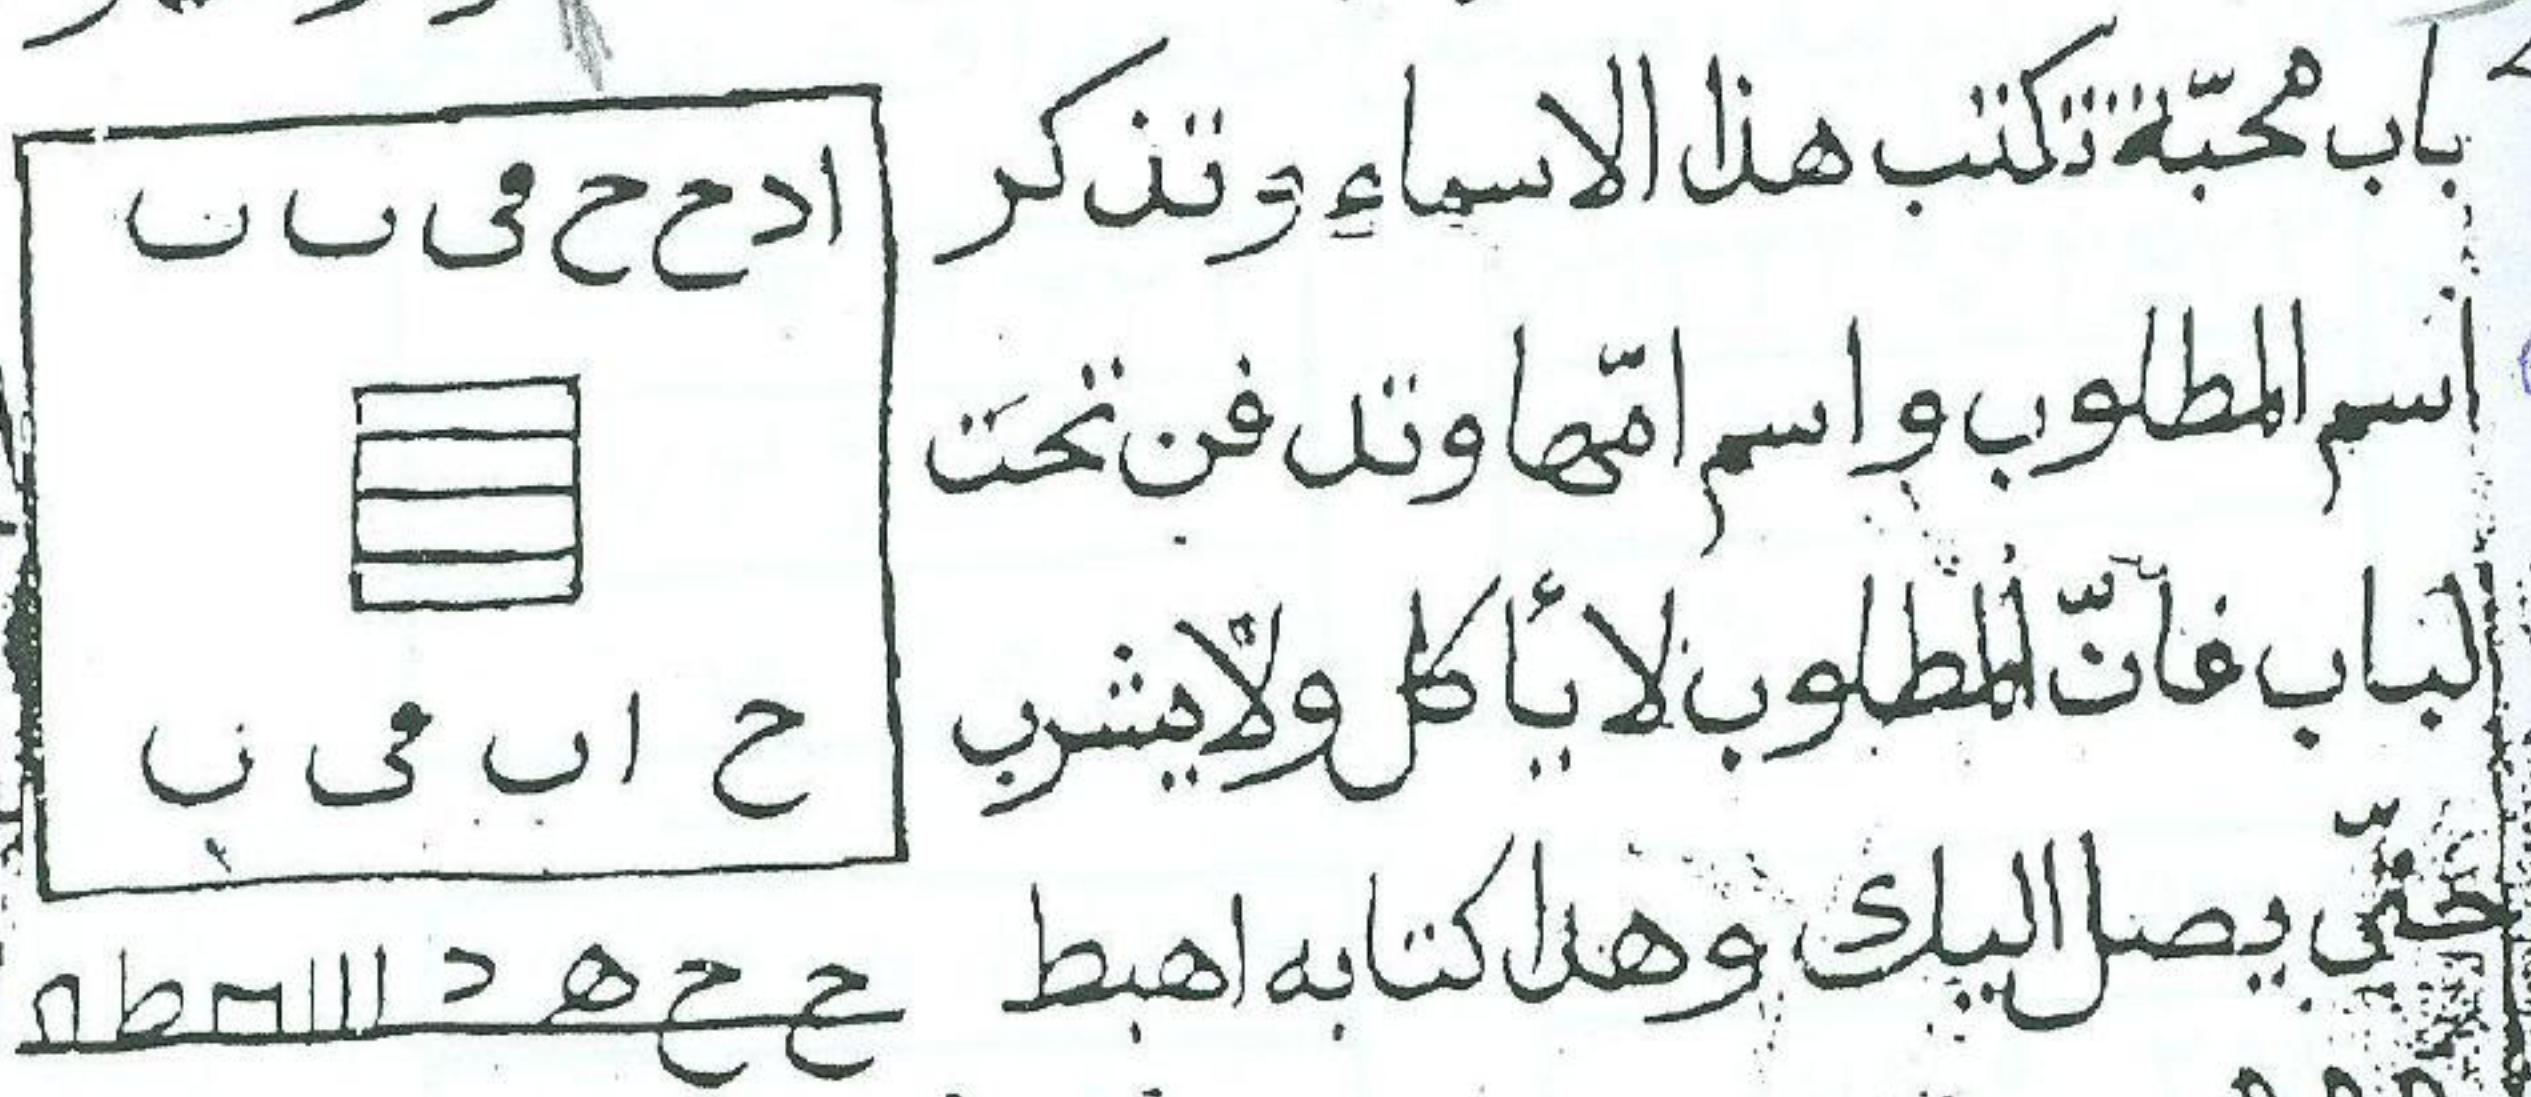 باب محبّة تكتب هذا الاسماء وتذكر
اسم المطلوب واسم امّها وتدفن تحت
لباب فأنّ المطلوب لا يأكل ولا يشرب
حتّى يصل اليك وهذا كتابه اهبط
ا د ح ح فى ں ن
ح ا ب فى ن
ح ح ھ د ااا